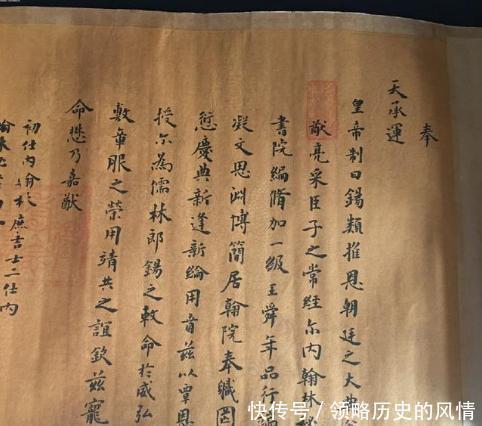 奉
天承運
皇帝制曰錫類推恩朝廷之大典
猷亮采臣子之常經尔内翰林
書院編脩加一級王舜年品行端
凝文思淵博簡居翰院奉職罔
愆慶典新逢新綸用賁兹以覃恩
授尔為儒林郎錫之敕命於戲弘
敷章服之榮用靖共之誼欽兹寵
命懋乃嘉猷
初任内翰林庶吉士二任内
翰林
快传号/领略历史的风情